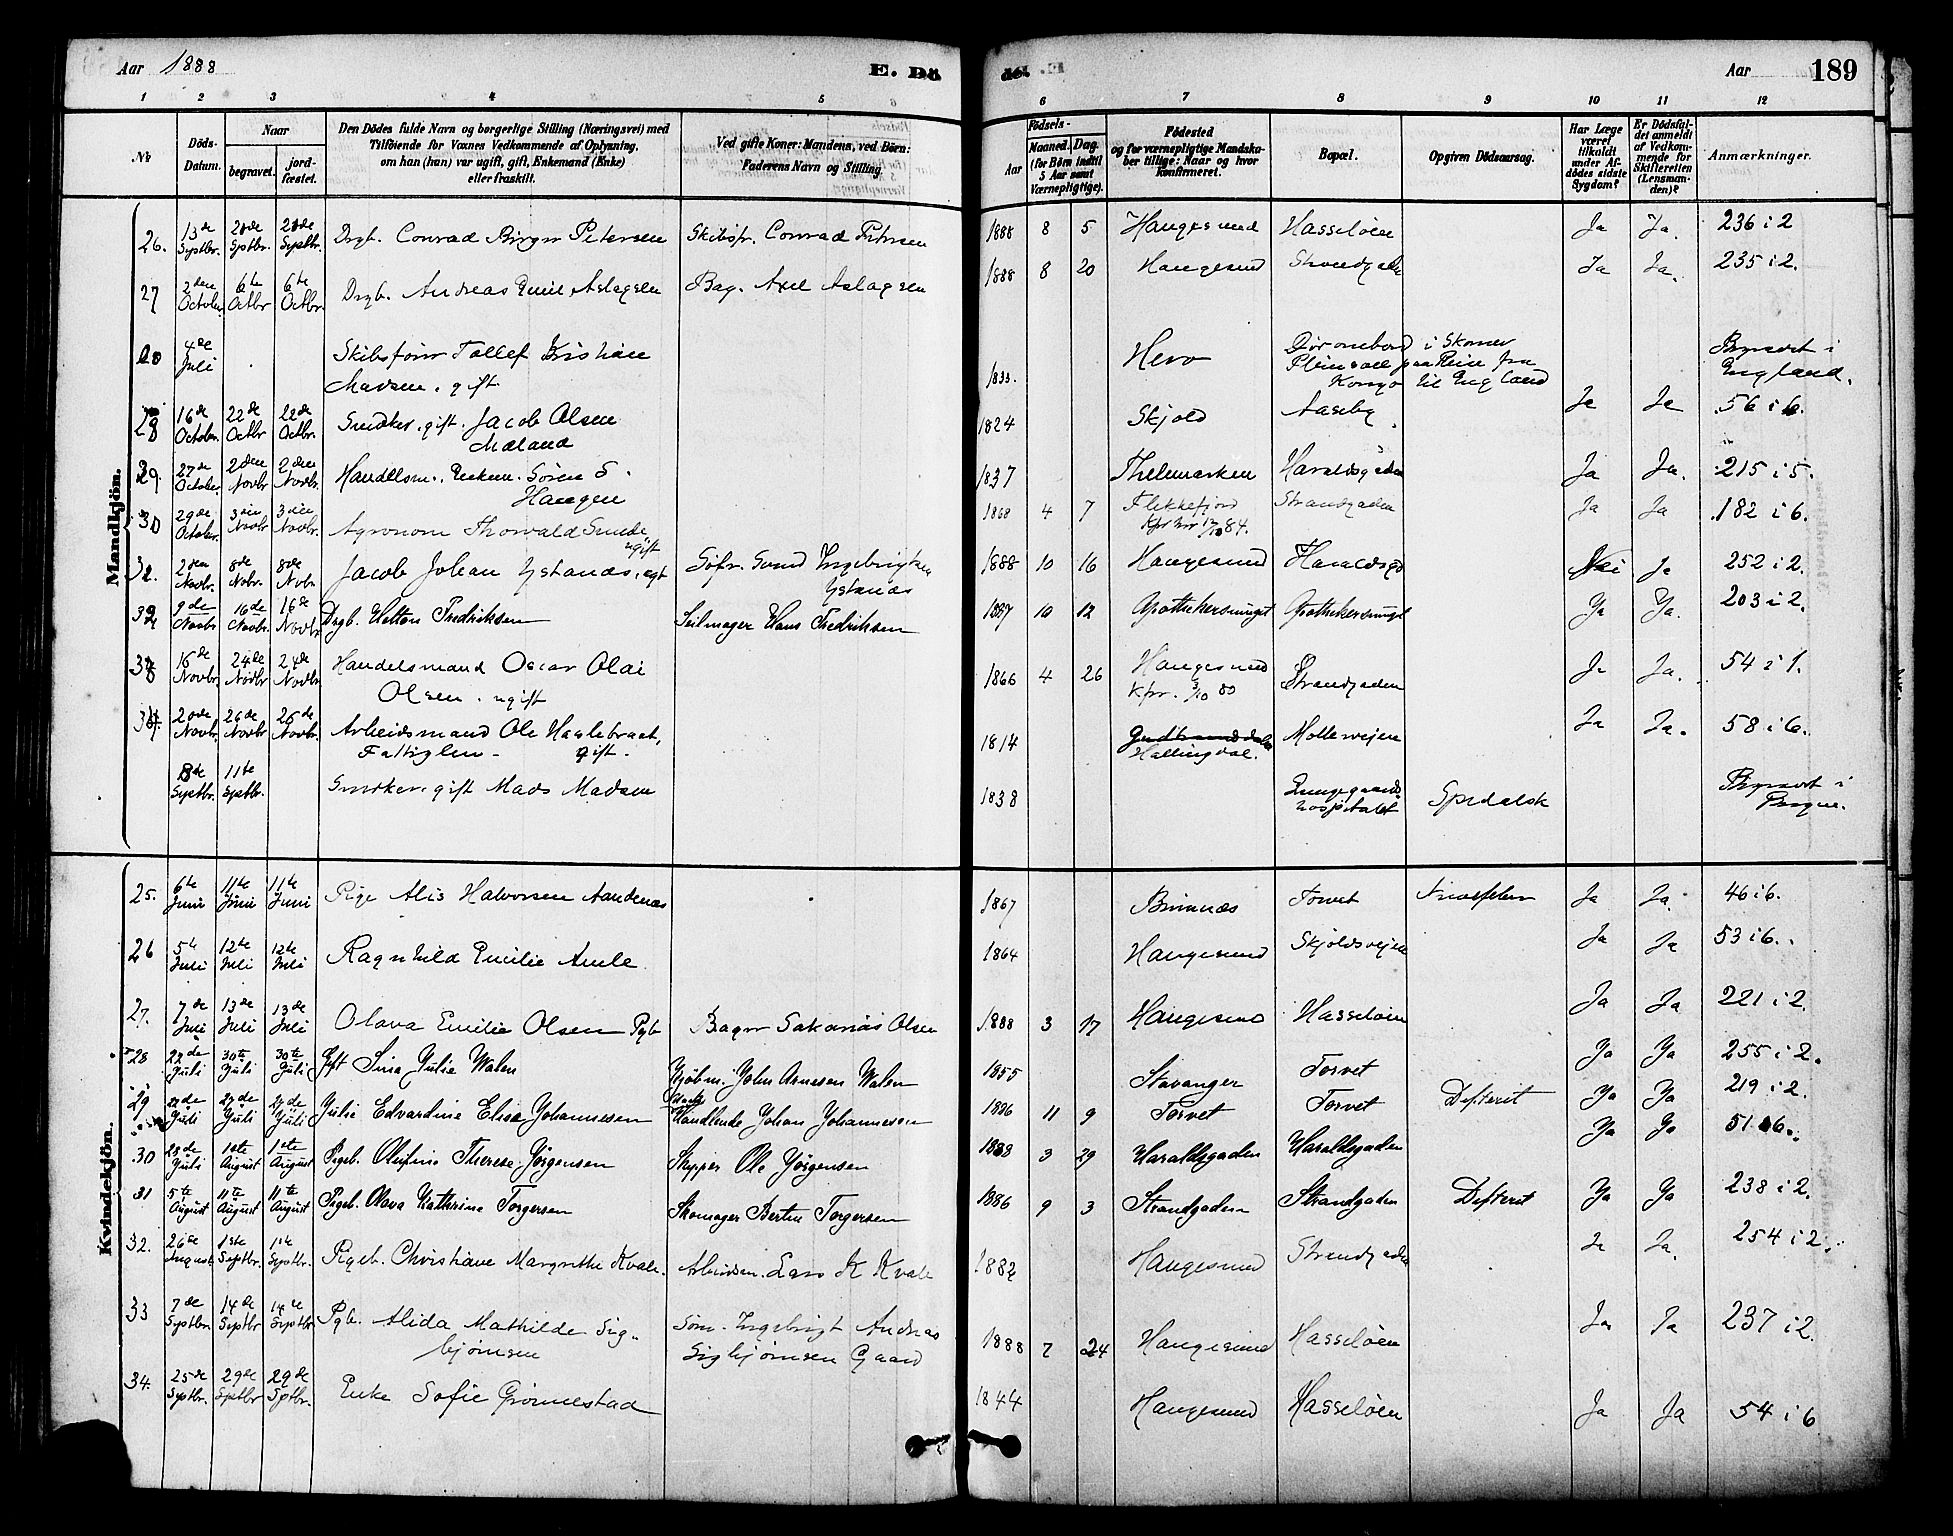 Aar 1888
E. Dö
de.
Aar
189
1 2 3 4 5 6 7 8 9 10 11 12
No
Döds-Datum.
Naar
begravet.
jord-fæstet.
Den Dödes fulde Navn og borgerlige Stilling (Næringsvei) med
Tilföiende for Voxnes Vedkommende af Oplysning,
om han (hun) var ugift, gift, Enkemand (Enke)
eller fraskilt.
Ved gifte Koner: Mandens, ved Börn:
Faderens Navn og Stilling.
Födsels-
Aar
Maaned. Dag.
(for Börn indtil
5 Aar samt
Værnepligtige).
Födested
og for værnepligtige Mandska-
ber tillige: Naar og hvor
konfirmeret.
Bopæl.
Opgiven Dödsaarsag.
Har Læge
været
tilkaldt
under Af-
dödes sidste
Sygdom?
Er Dödsfal-
det anmeldt
af Vedkom-
mende for
Skifteretten
(Lensman-
den)?
Anmærkninger.
Mandkjön.
26. 13de Septbr. 20de Septbr. 20de Septbr. Drgb. Conrad Birger Petersen Skibsfr. Conrad Petersen 1888 8 5 Haugesund Hasseløen Ja Ja. 236 i 2
27 2den October 6te Octbr 6te Octbr. Drgb. Andreas Emil Aslagsen Bag. Axel Aslagsen 1888 8 20 Haugesund Strandgaden Ja Ja. 235 i 2.
4de Juli Skibsförer Tollef Kristian
Madsen. gift. 1833. Herø ombord i Skonner
paa Reise fra
Kongo til England Begravet i
England.
28 16de October. 22de Octbr 22de Octbr. Snedker, gift. Jacob Olsen
Mæland 1824 Skjold Aaseby Ja Ja 56 i 6.
29. 27de October. 2den Novbr 2den Novbr. Handelsm. Enkem. Sören S.
Haugen 1837 Thelemarken Haraldsgaden Ja Ja. 215 i 5.
30 29de October. 3die Novbr 3die Novbr. Agronom Thorvald Sunde,
ugift 1868 4 7 Flekkefjord
84. Strandgaden Ja Ja 182 i 6.
31. 2den Novbr. 8de Nobr. 8de Nobr. Jacob Johan Ystanæs, egt Söfr. Svend Ingebrigtsen
Ystanæs 1888 10 16 Haugesund Haraldsgd Nei Ja 252 i 2.
32 9de Novbr. 16de Novbr. 16de Novbr. Drgb. Hetton Fredriksen Seilmager Hans Fredriksen 1887 10 12 Apothekersmuget Apothekersmuget Ja Ja. 203 i 2.
33 16de Novbr. 24de Novbr 24de Novbr. Handelsmand Oscar Olai
Olsen. ugift 1866 4 26 Haugesund
Kfr. 3/10 80 Strandgaden Ja Ja. 54 i 1.
34. 20de Novbr. 26de Novbr 26de Novbr. Arbeidsmand Ole Haslebraat,
Fattiglem - gift. 1814 Gudbrandsdalen
Hallingdal. Mølleveien Ja Ja. 58 i 6.
8de Septbr. 11te Septbr. Snedker, gift Mads Madsen 1838 Lungegaards
hospitalet Spedalsk Begravet i
Bergen.
Kvindekjön.
25. 6te Juni 11te Juni 11te Juni Pige Alis Halvorsen Aandenæs 1867 Bremnæs Torvet Ja Ja. 46 i 6.
26 5te Juli 12te Juli 12te Juli Ragnhild Emilie Amle. 1864 Haugesund Skjoldsveien Ja Ja 53 i 6.
27. 7de Juli 13de Juli 13de Juli Olava Emilie Olsen Pgb Bager Sakarias Olsen 1888 3 17 Haugesund Hasseløen Ja Ja 221 i 2.
28 22de Juli 30te Juli 30te Juli Gift Sina Julie Walen Kjöbm. John Arnesen Walen 1855 Stavanger Torvet Ja Ja 255 i 2.
29 22de Juli 27de Juli 27de Juli Julie Edvardine Elisa Johannessen Handlende Johan Johannessen 1886 11 9 Torvet Torvet Defterit Ja Ja 219 i 2.
30 28de Juli 1ste August 1ste August Pigeb. Olufine Therese Jörgensen Skipper Ole Jörgensen 1888 3 29 Haraldsgaden Haraldsgaden Ja Ja 51 i 6.
31 5te August 11te August 11te August Pigeb. Olava Kathrine Torgersen Skomager Bertin Torgersen 1886 9 3 Strandgaden Strandgaden Defterit Ja Ja 238 i 2.
32. 26de August 1ste Septbr. 1ste Septbr. Pigeb. Christiane Margrethe Kvale. Arbeidsm. Lars K Kvale 1882 Haugesund Strandgaden Ja Ja. 254 i 2.
33 7de Septbr. 14de Septbr 14de Septbr. Pgb. Alida Mathilde Sig-
bjørnsen Søm. Ingebrigt Andreas
Sigbjørnsen Gaard 1888 7 24 Haugesund Hasseløen Ja Ja 237 i 2.
34. 25de Septbr. 29de Septbr 29de Sptbr. Enke Sofie Grønnestad 1844 Haugesund Hasseløen Ja Ja 54 i 6